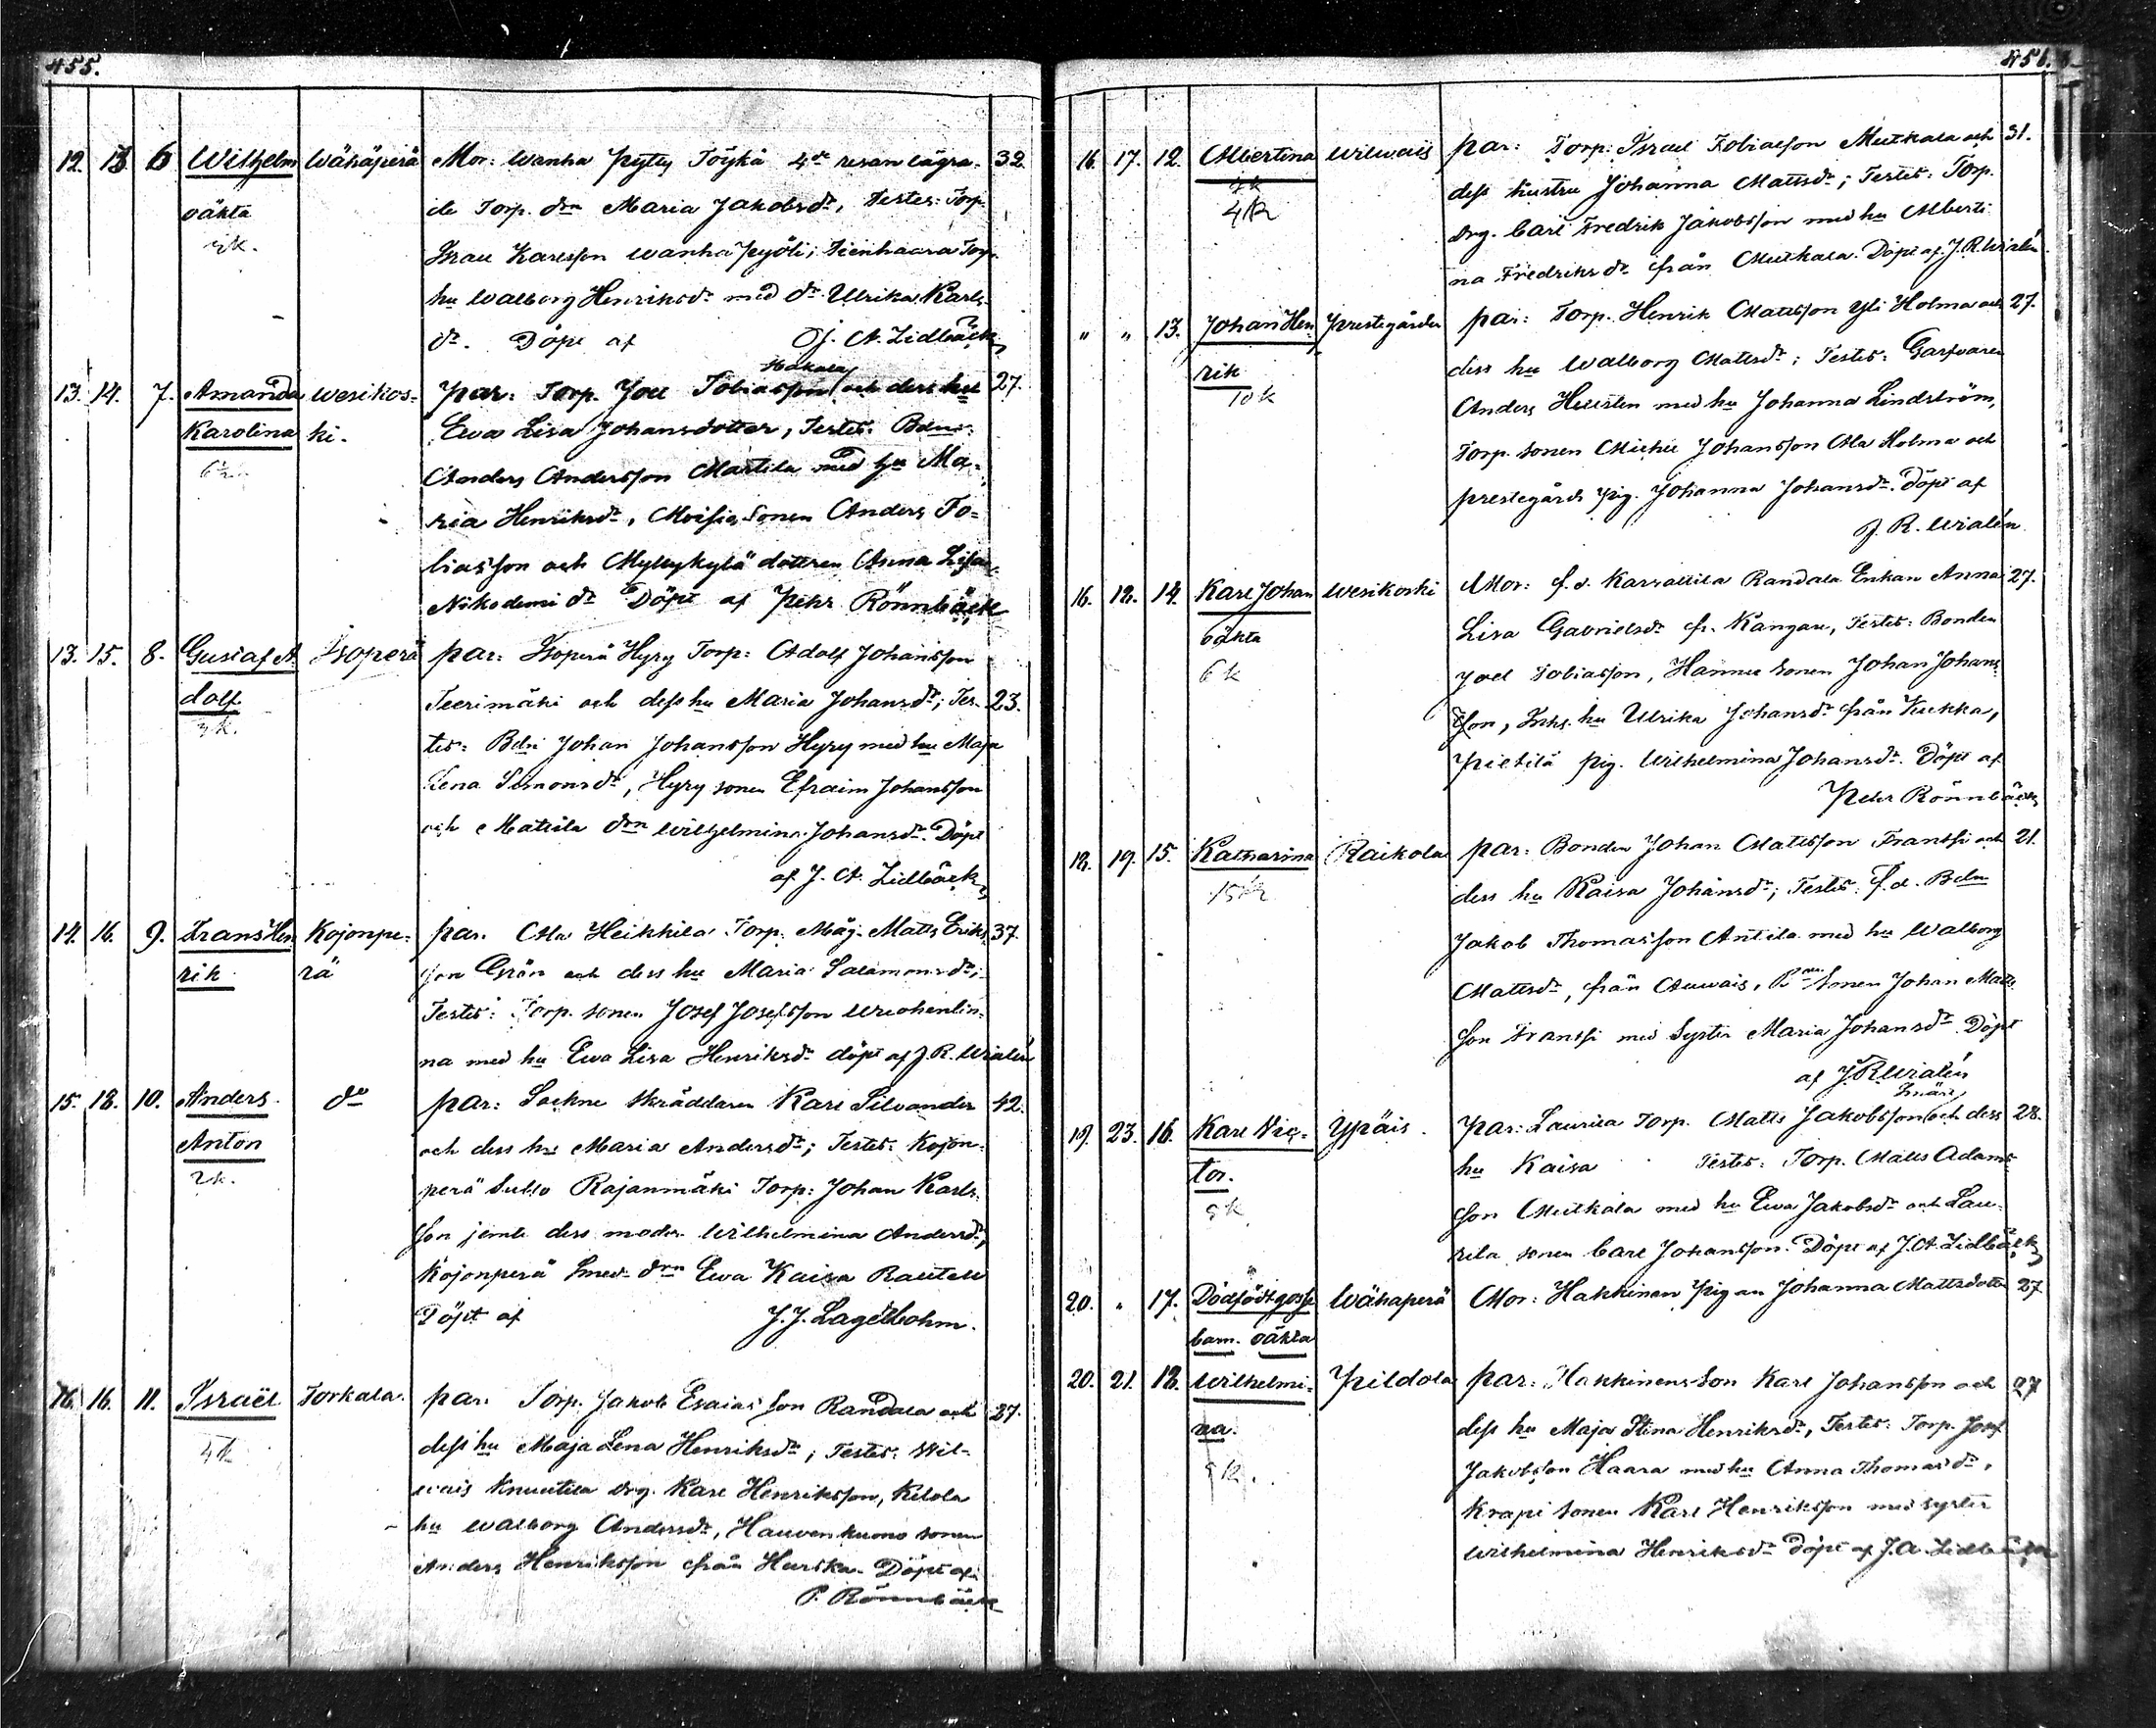 455.
12. 13. 6 Wilhelm Wähäperä Mor: Wanha Pytty Töykä 4de resan lägra- 32.
oäkta de Torp. drn Maria Jakobsdr, Testes: Torp.
Karlsson Wanha Torp.
hu Walborg Henriksdr med dr Ulrika Karls-
dr. Döpt af J. A. Lidbäck
Hakala
13. 14. 7. Amanda Wesikos- par: Torp. Joel Tobiasson och dess hu 27.
Karolina ki. Ewa Lisa Johansdotter, Testes. Bdn:
Anders Andersson Martila med hu Ma-
ria Henriksdr, Moisio sonen Anders To-
biasson och Myllykylä dottren Anna Lisa
Nikodemi dr Döpt af Pehr Rönnbäck
13. 15. 8. Gustaf A- Isoperä par: Isoperä Hyry Torp: Adolf Johansson
dolf. Teerimäki och dess hu Maria Johansdr; Tes- 23.
3k. tes: Bdn Johan Johansson Hyry med hu Maja
Lena Simonsdr, Hyry sonen Efraim Johansson
och Mattila drn Wilhelmina Johansdr. Döpt
af J. A. Lidbäck
14. 16. 9. Frans Hen Kojonpe- par. Ala Heikkila Torp. Måg. Matts Eriks 37.
rik. rä son Grön och dess hu Maria Salamonsdr;
Testes: Torp. sonen Josef Josefsson Wuohenlin-
na med hu Ewa Lisa Henriksdr döpt af J. R. Wialén
15. 18. 10. Anders do par: Sockne skräddaren Karl Silvander 42.
Anton och dess hu Maria Andersdr; Testes: Kojon-
2k. perä Suldo Rajanmäki Torp: Johan Karls-
son jemte dess moder Wilhelmina Andersdr,
Kojonperä Smed drn Ewa Kaisa Rautell
Döpt af J. J. Lagerbohm.
16. 16. 11. Israël Torkala. par. Torp. Jakob Esaiasson Randala och 27.
4k dess hu Maja Lena Henriksdr; Testes: Wil-
wais Knuutila drg. Karl Henriksson, Kelola
hu Walborg Andersdr, Hauvenkuono sonen
Anders Henriksson från Hurska. Döpt af
P. Rönnbäck
456.
16. 17. 12. Albertina Wilwais par: Torp. Israel Tobiasson Mutkala och 31.
4k dess hustru Johanna Mattsdr; Testes: Torp.
4k drg. Carl Fredrik Jakobsson med hu Alberti-
na Fredriksdr från Mutkala. Döpt af J. R. Wialén
" " 13. Johan Hen Prestegården par: Torp. Henrik Mattsson Yli Holma och 27.
rik dess hu Walborg Mattsdr; Testes: Garfvaren
10k Anders Hellsten med hu Johanna Lindström,
Torp. sonen Michel Johansson Ala Holma och
prestegårds pig. Johanna Johansdr. Döpt af
J. R. Wialén
16. 18. 14. Karl Johan Wesikoski Mor: f.d. Karvattila Randala Enkan Anna 27.
oäkta Lisa Gabrielsdr fr. Kangare, Testes: Bonden
6k Joel Tobiasson, Hannu sonen Johan Johans
son, Inhs. hu Ulrika Johansdr från Kukka,
Pietilä pig. Wilhelmina Johansdr. Döpt af
Pehr Rönnbäck
18. 19. 15. Katharina Raikola par: Bonden Johan Mattsson Franssi och 21.
15k dess hu Kaisa Johansdr; Testes: f.d. Bdn
Jakob Thomasson Antila med hu Walborg
Mattsdr, från Auvais, sonen Johan Matts
son Franssi med Syster Maria Johansdr Döpt
af J R Wialén
19. 23. 16. Karl Vic- Ypäis. par: Laurila Torp. Matts Jakobsson och dess 28.
tor. hu Kaisa Testes: Torp. Matts Adams-
9k son Mutkala med hu Ewa Jakobsdr och Lau-
rila sonen Carl Johansson. Döpt af J. A. Lidbäck
20. " 17. Dödfödt gosse Wähäperä Mor: Hakkinen Pigan Johanna Mattsdotter 27
barn. oäkta
20. 21. 18. Wilhelmi- Pildola par: Hakkinens Son Karl Johansson och 27
na. dess hu Maja Stina Henriksdr, Testes: Torp. Josef
Jakobsson Haara med hu Anna Thomasdr,
Krapi sonen Karl Henriksson med syster
Wilhelmina Henriksdr Döpt af J. A. Lidbäck